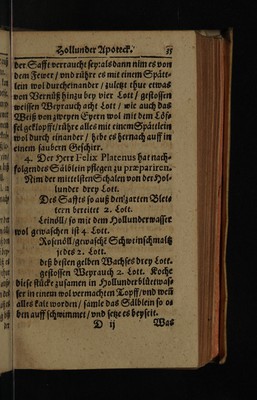 Hollunder Apoteck. 35
der Safft verraucht sey: als dann nim es von
dem Fewer / vnd rühre es mit einem Spätt-
lein wol durcheinander / zuletzt thue etwas
von Vernüß hinzu bey vier Lott / gestossen
weissen Weyrauch acht Lott / wie auch das
Weiß von zweyen Eyren wol mit dem Löf-
fel geklopfft: rühre alles mit einem Spätlein
wol durch einander / hebe es hernach auff in
einem saubern Geschirr.
4. Der Herr Felix Platerus hat nach-
folgendes Sälblein pflegen zu præpariren.
Nim der mittelsten Schalen von der Hol-
lunder drey Lott.
Des Saffts so auß den zarten Blet-
tern bereitet 2. Lott.
Leinöll / so mit dem Hollunderwasser
wol gewaschen ist 4. Lott.
Rosenöll / gewascht Schweinschmaltz
jedes 2. Lott.
deß besten gelben Wachses drey Lott.
gestossen Weyrauch 2. Lott. Koche
diese stücke zusamen in Hollunderblüetwas-
ser in einem wol vermachten Topff / vnd weñ
alles kalt worden / samle das Sälblein so o-
ben auff schwimmet / vnd setze es beyseit.
D ij Was